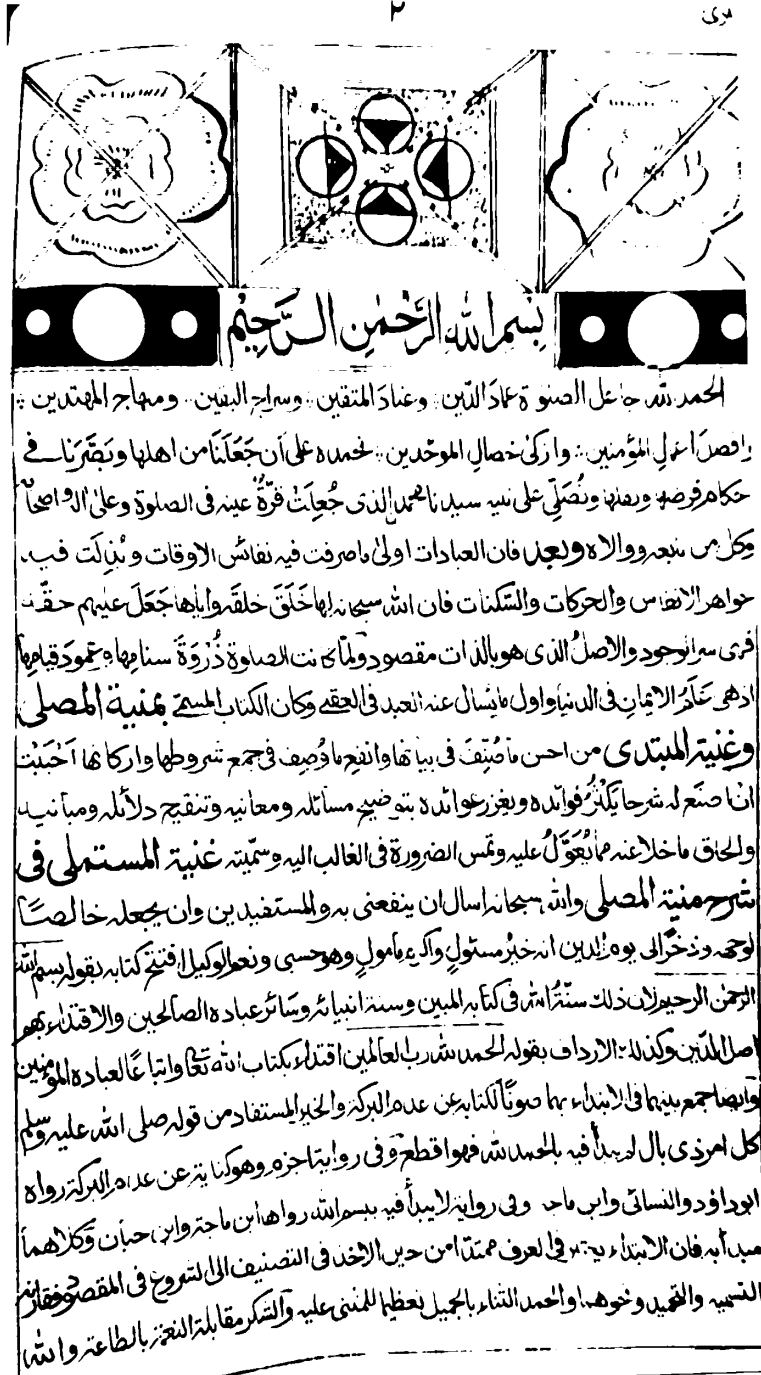 ٢
بسم الله الرحمن الرحيم
الحمد لله جاعل الصلوة عمادَ الدّين وعتادَ المتقين وسراج اليقين ومنهاج المهتدين
وافضلَ اعمالِ المؤمنين وازكىٰ خصالِ الموحّدين نحمده على أن جَعَلَنَا من اهلها وبَصَّرَنا في
حكام فرضها ونفلها ونُصَلِّي على نبيه سيدنا محمد الذى جُعِلَتْ قُرَّةُ عينه فى الصلوة وعلىٰ اله واصحا
وكل من تبعه ووالاه وبعد فان العبادات اولىٰ ما صرفت فيه نفائس الاوقات وبُذِلَت فيه
جواهر الانفاس والحركات والسّكنات فان الله سبحانه لها خَلَقَ خلقَه واياها جَعَلَ عليهم حقَّه
فهى سر الوجود والاصلُ الذى هو بالذات مقصود ولمّا كانت الصلوة ذُروَةَ سنامها وعمودَ قيامها
اذهى عَلَمُ الايمانِ فى الدنيا واول ما يسأل عنه العبد فى العقبى وكان الكتاب المسمّى بمنية المصلى
وغنية المبتدى من احسن ما صُنِّفَ فى بيانها وانفع ما وُصِفَ فى جمع شروطها واركانها اَحْبَبْتُ
ان اصنَعَ له شرحا يَكْثُرُ فوائدَه ويغزر عوائده بتوضيح مسائله ومعانيه وتنقيح دلائله ومبانيه
والحاق ما خلا عنه مما يُعَوَّلُ عليه وتمس الضرورة فى الغالب اليه وسمّيته غنية المستملى فى
شرح منية المصلى والله سبحانه اسال ان ينفعنى به والمستفيدين وان يجعله خالصًا
لوجهه وذخرًا الى يوم الدين انه خيرُ مسئولٍ واكرمُ مامولٍ وهو حسبى ونعم الوكيل افتتح كتابه بقوله بسم الله
الرحمن الرحيم لان ذلك سنّةُ الله فى كتابه المبين وسنة انبيائه وسائر عباده الصالحين والاقتداء بهم
اصل الدّين وكذلك الارداف بقوله الحمد لله رب العالمين اقتداء بكتاب الله تعالى واتباعًا لعباده المؤمنين
وايضا جمع بينهما فى الابتداء بهما صونًا لكتابه عن عدم البركة والخير المستفاد من قوله صلى الله عليه وسلم
كل امر ذى بال لم يبدأ فيه بالحمد لله فهو اقطع وفى رواية اجزم وهو كناية عن عدم البركة رواه
ابو داؤد والنسائى وابن ماجه وفى رواية لا يبدأ فيه ببسم الله رواها ابن ماجة وابن حبان وكلاهما
مبدأ به فان الابتداء فى العرف ممتدًا من حين الاخذ فى التصنيف الى الشروع فى المقصود فقارنه
التسمية والتحميد ونحوهما والحمد الثناء بالجميل تعظيما للمثنى عليه والشكر مقابلة النعمة بالطاعة والله